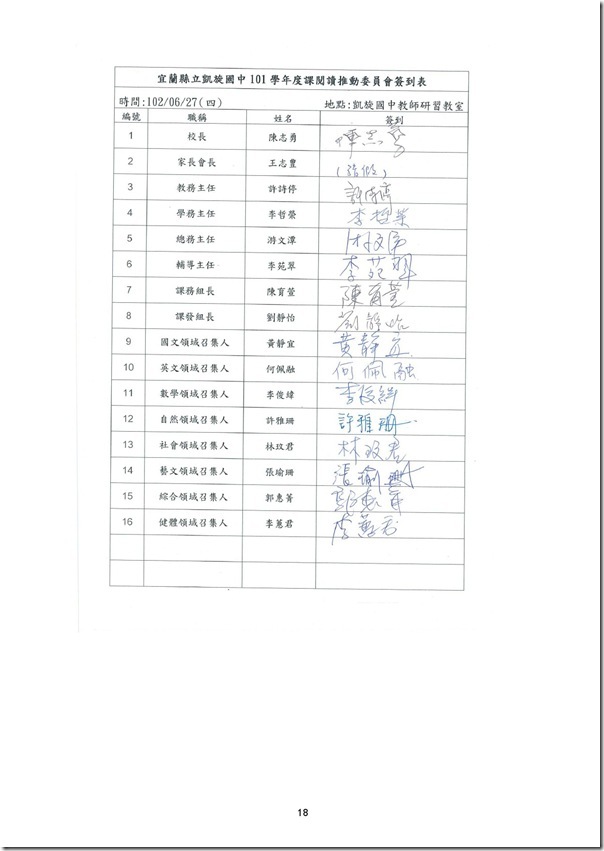 宜蘭縣立凱旋國中 101 學年度課閱讀推動委員會簽到表
時間:102/06/27(四) 地點:凱旋國中教師研習教室
編號 職稱 姓名 簽到
1 校長 陳志勇 陳志勇
2 家長會長 王志豐 (請假)
3 教務主任 許詩停
4 學務主任 李哲榮 李哲榮
5 總務主任 游文潭
6 輔導主任 李苑翠 李苑翠
7 課務組長 陳育萱 陳育萱
8 課發組長 劉靜怡 劉靜怡
9 國文領域召集人 黃靜宜 黃靜宜
10 英文領域召集人 何佩融 何佩融
11 數學領域召集人 李俊緯
12 自然領域召集人 許雅珊 許雅珊
13 社會領域召集人 林玟君 林玟君
14 藝文領域召集人 張瑜珊 張瑜珊
15 綜合領域召集人 郭惠菁
16 健體領域召集人 李蕙君 李蕙君
18